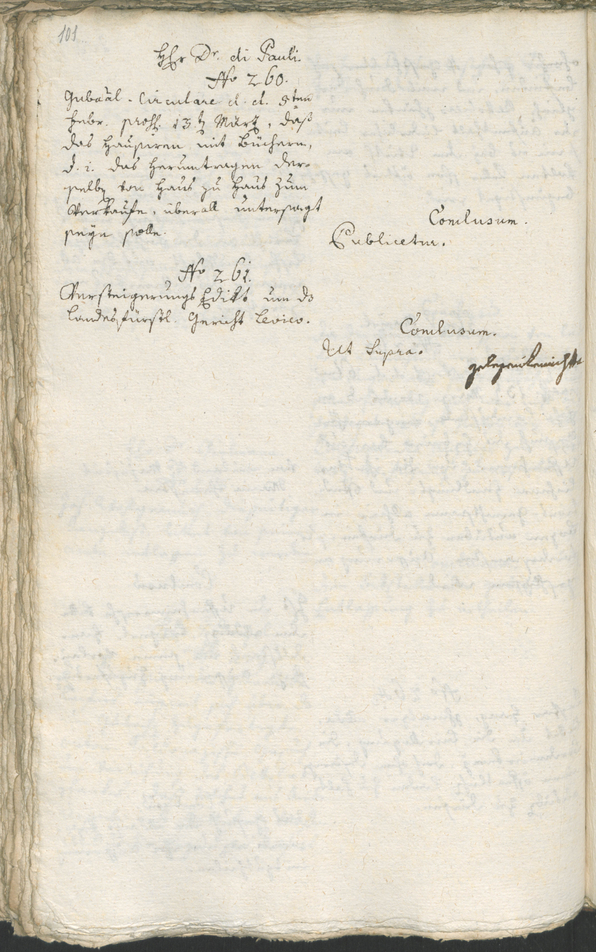 101.
HEr Dr. di Pauli.
No 260.
Gubaal. Circulare d. d. 8ten
Febr. 13ten März, daß
das Hausiren mit Büchern,
d. i. das Herumtragen der-
selben von Haus zu Haus zum
Verkaufe, überall untersagt
seyn solle.
Conclusum.
Publicetur.
No 261.
Versteigerungs Edikt um das
Landesfürstl. Gericht Levico.
Conclusum.
Ut Supra.